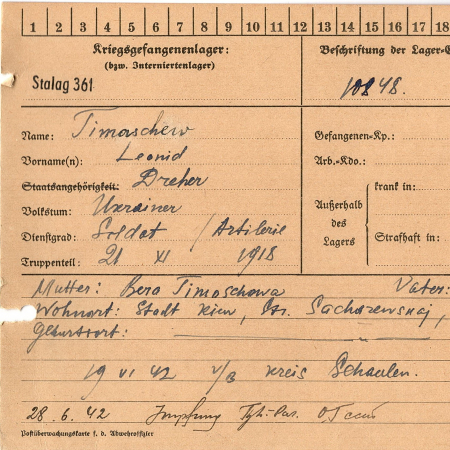 1 2 3 4 5 6 7 8 9 10 11 12 13 14 15 16 17 18
Kriegsgefangenenlager:
(bzw. Interniertenlager)
Beschriftung der Lager-
Stalag 361
10848.
Name: Timoschew
Gefangenen-Kp.:
Vorname(n): Leonid
Arb.-Kdo.:
Staatsangehörigkeit: Dreher
krank in:
Volkstum: Ukrainer
Außerhalb des Lagers
Dienstgrad: Soldat / Artilerie
Strafhaft in:
Truppenteil: 21 XI 1918
Mutter: Bera Timoschowa Vater:
Wohnort: Stadt Kiew, Str.
Geburtsort:
19 VI 42 V/B Kreis Schaulen.
28.6.42 Impfung
Postüberwachungskarte f. d. Abwehroffizier